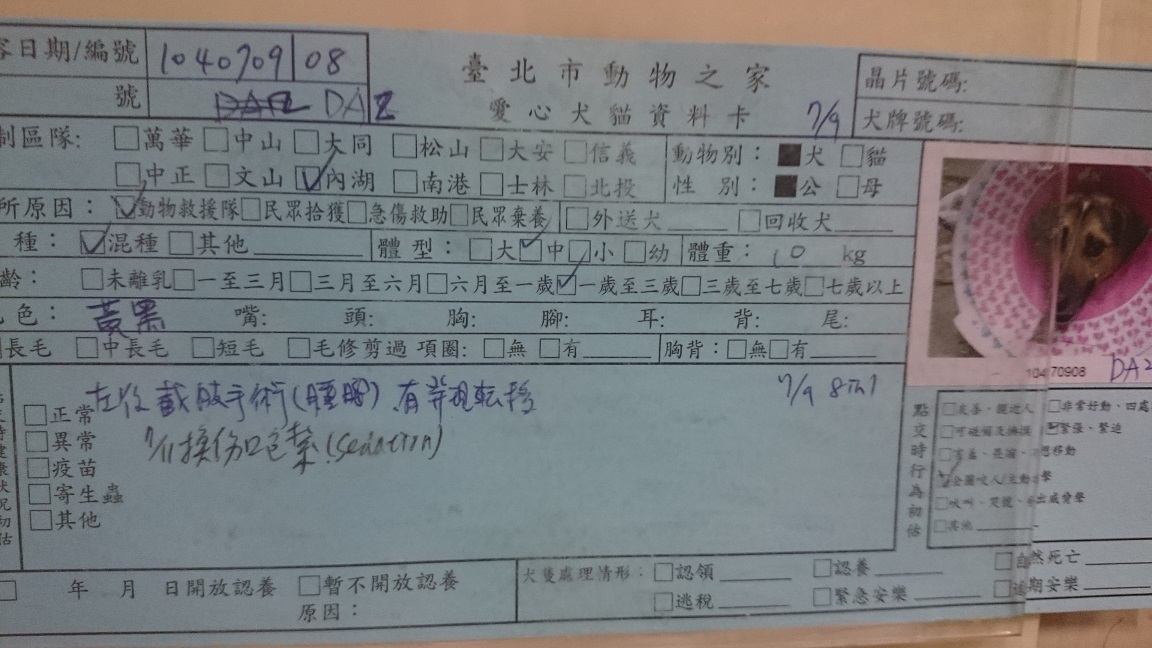 容日期/編號 1040709 08
臺北市動物之家
晶片號碼:
號 DAZ
愛心犬貓資料卡 7/9
犬牌號碼:
制區隊: □萬華 □中山 □大同 □松山 □大安 □信義
動物別: ■犬 □貓
□中正 □文山 ☑內湖 □南港 □士林 □北投
性別: ■公 □母
所原因: ☑動物救援隊 □民眾拾獲 □急傷救助 □民眾棄養 □外送犬 □回收犬
種: ☑混種 □其他 體型: □大 ☑中 □小 □幼 體重: 10 kg
齡: □未離乳 □一至三月 □三月至六月 □六月至一歲 ☑一歲至三歲 □三歲至七歲 □七歲以上
色: 黃黑 嘴: 頭: 胸: 腳: 耳: 背: 尾:
長毛 □中長毛 □短毛 □毛修剪過 項圈: □無 □有 胸背: □無 □有
10470908 DA2
左後截肢手術 7/9
□正常
□異常 7/11換傷口包紮(sedation)
□疫苗
□寄生蟲
□其他
點交時行為初估
□友善、親近人 □非常好動、四處
□可碰觸及 ☑緊張、緊迫
思移動
☑企圖咬人/主動 擊
□吠叫、 出威脅聲
□其他
□ 年 月 日開放認養 □暫不開放認養
原因:
犬隻處理情形: □認領 □認養 □自然死亡
□逃脫 □緊急安樂 □逾期安樂